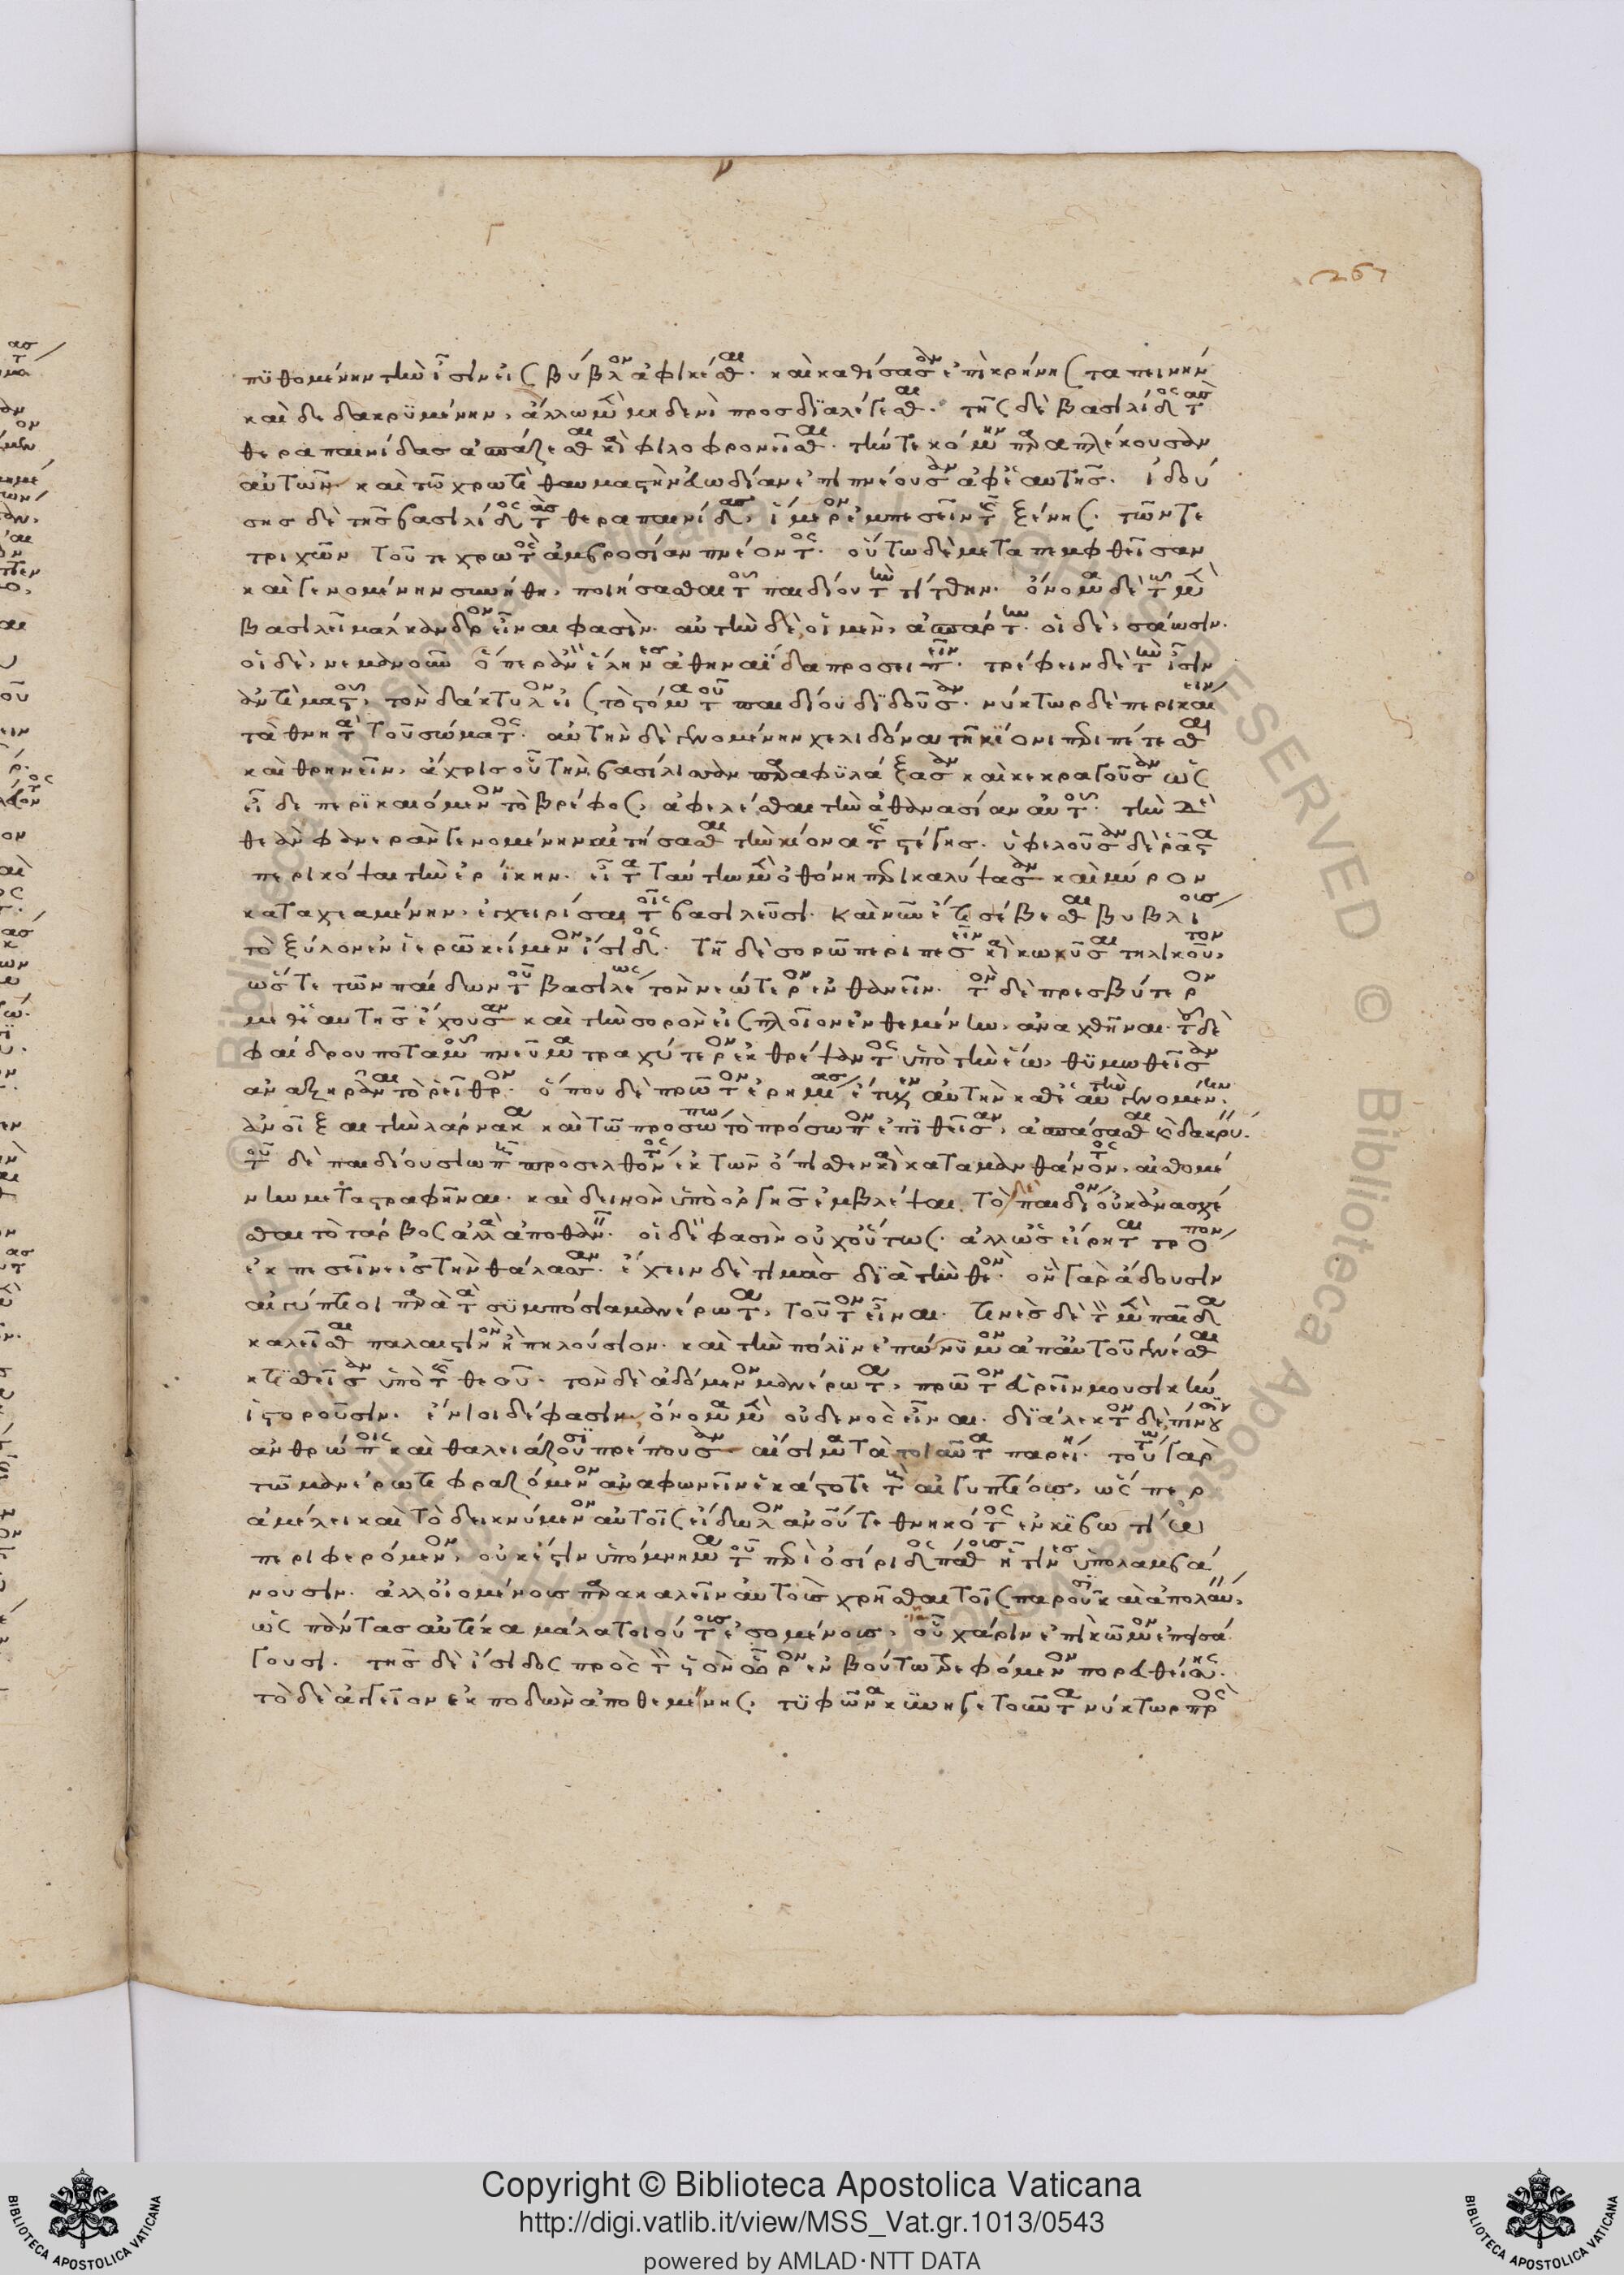 267
πϋθομένην τὴν ἶσιν εἰς βύβλον ἀφικέσθαι. καὶ καθίσασαν ἐπὶ κρήνης ταπεινὴν
καὶ δεδακρϋμένην, ἄλλω μὲν μηδενὶ προσδϊαλέγεσθαι. τῆς δὲ βασιλίδος τὰς
θεραπαινίδας ἀσπάζεσθαι καὶ φιλοφρονεῖσθαι. τήν τε κόμην παραπλέκουσαν
αὐτῶν καὶ τῶ χρωτὶ θαυμαστὴν εὐωδίαν ἐπιπνέουσαν ἀφ' ἑαυτῆς. ἰδού
σης δὲ τῆς βασιλίδος τὰς θεραπαινίδας, ἵμερον ἐμπεσεῖν τῆς ξένης. τῶν τε
τριχῶν τοῦ τε χρωτὸς ἀμβροσίαν πνέοντος. οὕτω δὲ μεταπεμφθεῖσαν
καὶ γενομένην συνήθη, ποιήσασθαι τοῦ παιδίου τὴν τίτθην. ὄνομα δὲ τῶ μὲν
βασιλεῖ μάλκανδρον εἶναι φασὶν. αὐτὴν δὲ, οἱ μὲν, ἀσπάρτην. οἱ δὲ, σάωσιν.
οἱ δὲ, νεμανοῦν ὅπερ ἂν ἕλληνες ἀθηναΐδα προσείπειεν. τρέφειν δὲ τὴν ἶσιν
ἀντὶ μαστοῦ, τὸν δάκτυλον εἰς τὸ στόμα τοῦ παιδίου διδοῦσαν. νύκτωρ δὲ περικαίειν
τὰ θνητὰ τοῦ σώματος. αὐτὴν δὲ γενομένην χελιδόνα τῆ κίονι περιπέτεσθαι
καὶ θρηνεῖν, ἄχρις οὗ τὴν βασίλισσαν παραφϋλάξασαν καὶ κεκραγοῦσαν ὡς
εἶδε περϊκαιόμενον τὸ βρέφος, ἀφελέσθαι τὴν ἀθανασίαν αὐτοῦ. τὴν δὲ
θεὰν φανερὰν γενομένην αἰτήσασθαι τὴν κίονα τῆς στέγης. ὑφελοῦσαν δὲ ῥᾶστα
περικόψαι τὴν ἐρίκην. εἶτα ταύτην μὲν ὀθόνη περικαλύψασαν καὶ μύρον
καταχεαμένην, ἐγχειρίσαι τοῖς βασιλεῦσι. καὶ νῦν ἔτι σέβεσθαι βυβλίοις
τὸ ξύλον ἐν ἱερῶ κείμενον ἴσιδος. τῆ δὲ σορῶ περιπεσεῖν καὶ κωκῦσαι τηλικοῦτον,
ὥστε τῶν παίδων τοῦ βασιλέως τὸν νεώτερον ἐνθανεῖν. τὸν δὲ πρεσβύτερον
μεθ' ἑαυτῆς ἔχουσαν καὶ τὴν σορὸν εἰς πλοῖον ἐνθεμένην, ἀναχθῆναι. τοῦ δὲ
φαίδρου ποταμοῦ πνεῦμα τραχύτερον ἐκθρέψαντος ὑπὸ τὴν ἕω, θϋμωθεῖσαν
ἀναξηρᾶναι τὸ ῥεῖθρον. ὅπου δὲ πρῶτον ἐρημίας ἔτυχεν αὐτὴν καθ' αὑτὴν γενομένην.
ἀνοῖξαι τὴν λάρνακα καὶ τῶ προσώπω τὸ πρόσωπον ἐπϊθεῖσαν, ἀσπάσασθαι καὶ δακρύειν.
τοῦ δὲ παιδίου σιωπῆ προσελθόντος ἐκ τῶν ὄπισθεν καὶ καταμανθάνοντος, αἰσθομέ
νην μεταστραφῆναι. καὶ δεινὸν ὑπὸ ὀργῆς ἐμβλέψαι. τὸ δὲ παιδίον οὐκ ἀνασχέ
σθαι τὸ τάρβος ἀλλὰ ἀποθανεῖν. οἱ δέ φασιν οὐχ οὕτως. ἀλλ' ὡς εἴρηται τρόπον
ἐκπεσεῖν εἰς τὴν θάλασσαν. ἔχειν δὲ τιμὰς δϊὰ τὴν θεόν. ὃν γὰρ ἄδουσιν
αἰγύπτιοι παρὰ τὰ σϋμπόσια μανέρωτα, τοῦτον εἶναι. τινὲς δὲ τὸν μὲν παῖδα
καλεῖσθαι παλαιστινὸν ἢ πηλούσιον. καὶ τὴν πόλιν ἐπώνϋμον ἀπ' αὐτοῦ γενέσθαι
κτϊσθεῖσαν ὑπὸ τῆς θεοῦ. τὸν δὲ ἀδόμενον μανέρωτα, πρῶτον εὑρεῖν μουσικὴν
ἱστοροῦσιν. ἔνιοι δέ φασιν ὄνομα μὲν οὐδενὸς εἶναι. δϊάλεκτον δὲ πίνουσιν
ἀνθρώποις καὶ θαλειάζουσϊ πρέπουσαν αἴσιμα τὰ τοιαῦτα παρείη. τοῦτο γὰρ
τῶ μανέρωτι φραζόμενον ἀναφωνεῖν ἑκάστοτε τοὺς αἰγυπτίους, ὥσπερ
ἀμέλει καὶ τὸ δεικνύμενον αὐτοῖς εἴδωλον ἀνθρώπου τεθνηκότος ἐν κϊβωτίω
περιφερόμενον, οὐκ ἔστιν ὑπόμνημα τοῦ περὶ ὀσίριδος πάθους ᾗ τινες ὑπολαμβά
νουσιν. ἀλλ' οἰομένους παρακαλεῖν αὐτοὺς χρῆσθαι τοῖς παροῦσι καὶ ἀπολαύειν,
ὡς πάντας αὐτίκα μάλα τοιούτους ἐσομένους, οὗ χάριν ἐπὶ κῶμον ἐπεισά
γουσι. τῆς δὲ ἴσιδος πρὸς τὸν υἱὸν ὧρον ἐν βούτω τρεφόμενον πορευθείσης.
τὸ δὲ ἀγγεῖον ἐκποδὼν ἀποθεμένης, τϋφῶνα κυνηγετοῦντα νύκτωρ πρὸς
Copyright © Biblioteca Apostolica Vaticana
http://digi.vatlib.it/view/MSS_Vat.gr.1013/0543
powered by AMLAD·NTT DATA